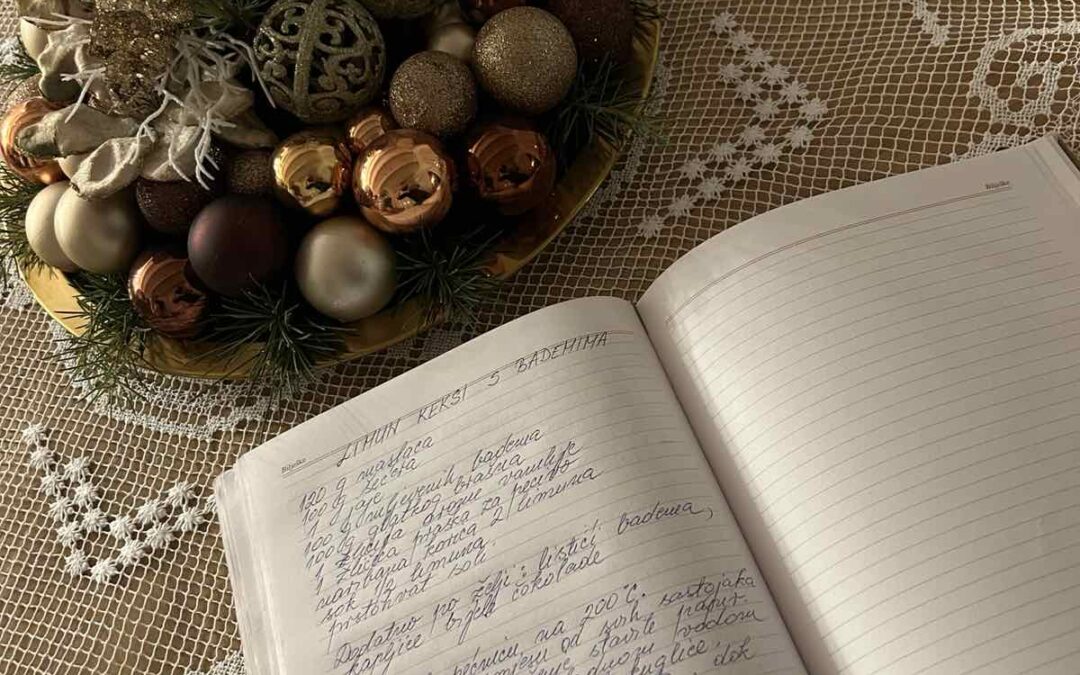 Bilješke
LIMUN KEKSI S BADEMIMA
120 g maslaca
100 g šećera
1 jaje
100 g mljevenih badema
100 g glatkog brašna
1 žličica arome vanilije
1 žličica praška za pecivo
naribana korica 2 limuna
sok 1/2 limuna
prstohvat soli.
Dodatno po želji: listići badema,
kapljice bijele čokolade
pećnicu na 200°C.
od svih sastojaka
stavite papir.
vodom
kuglice,
dok
Bilješke